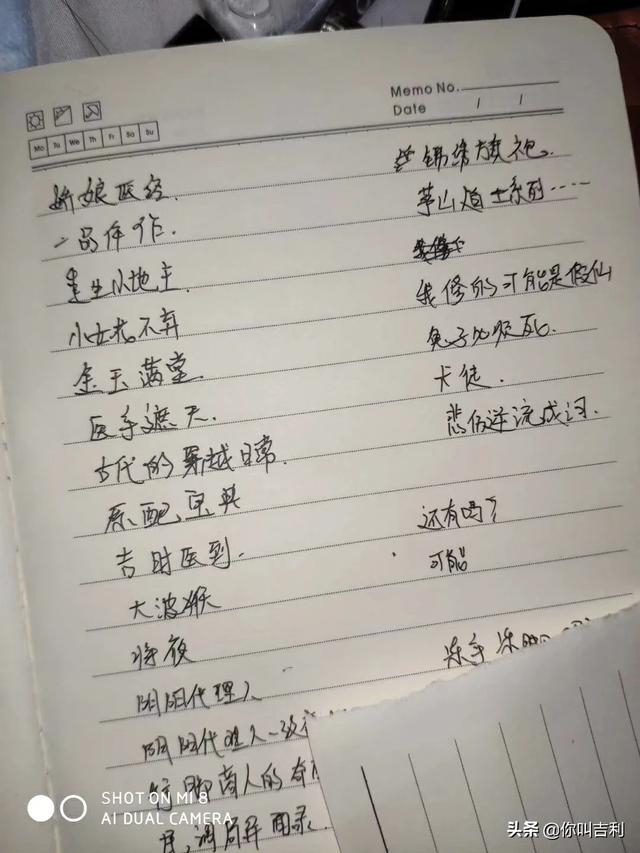 Memo No.
Date / /
Mo Tu We Th Fr Sa Su
娇娘医经.
一品仵作.
重生小地主
小女花不弃
金玉满堂
医手遮天.
古代的穿越日常.
原配
吉时医到.
大波猴
将夜
阴阳代理人
阴阳代理人一
行脚商人的奇
录.
锦绣旗袍.
茅山道士系列……
我修的可能是假仙
兔子必须死.
卡徒.
悲伤逆流成河.
还有吗?
可能
冻手冻脚
SHOT ON MI 8
AI DUAL CAMERA
头条 @你叫吉利